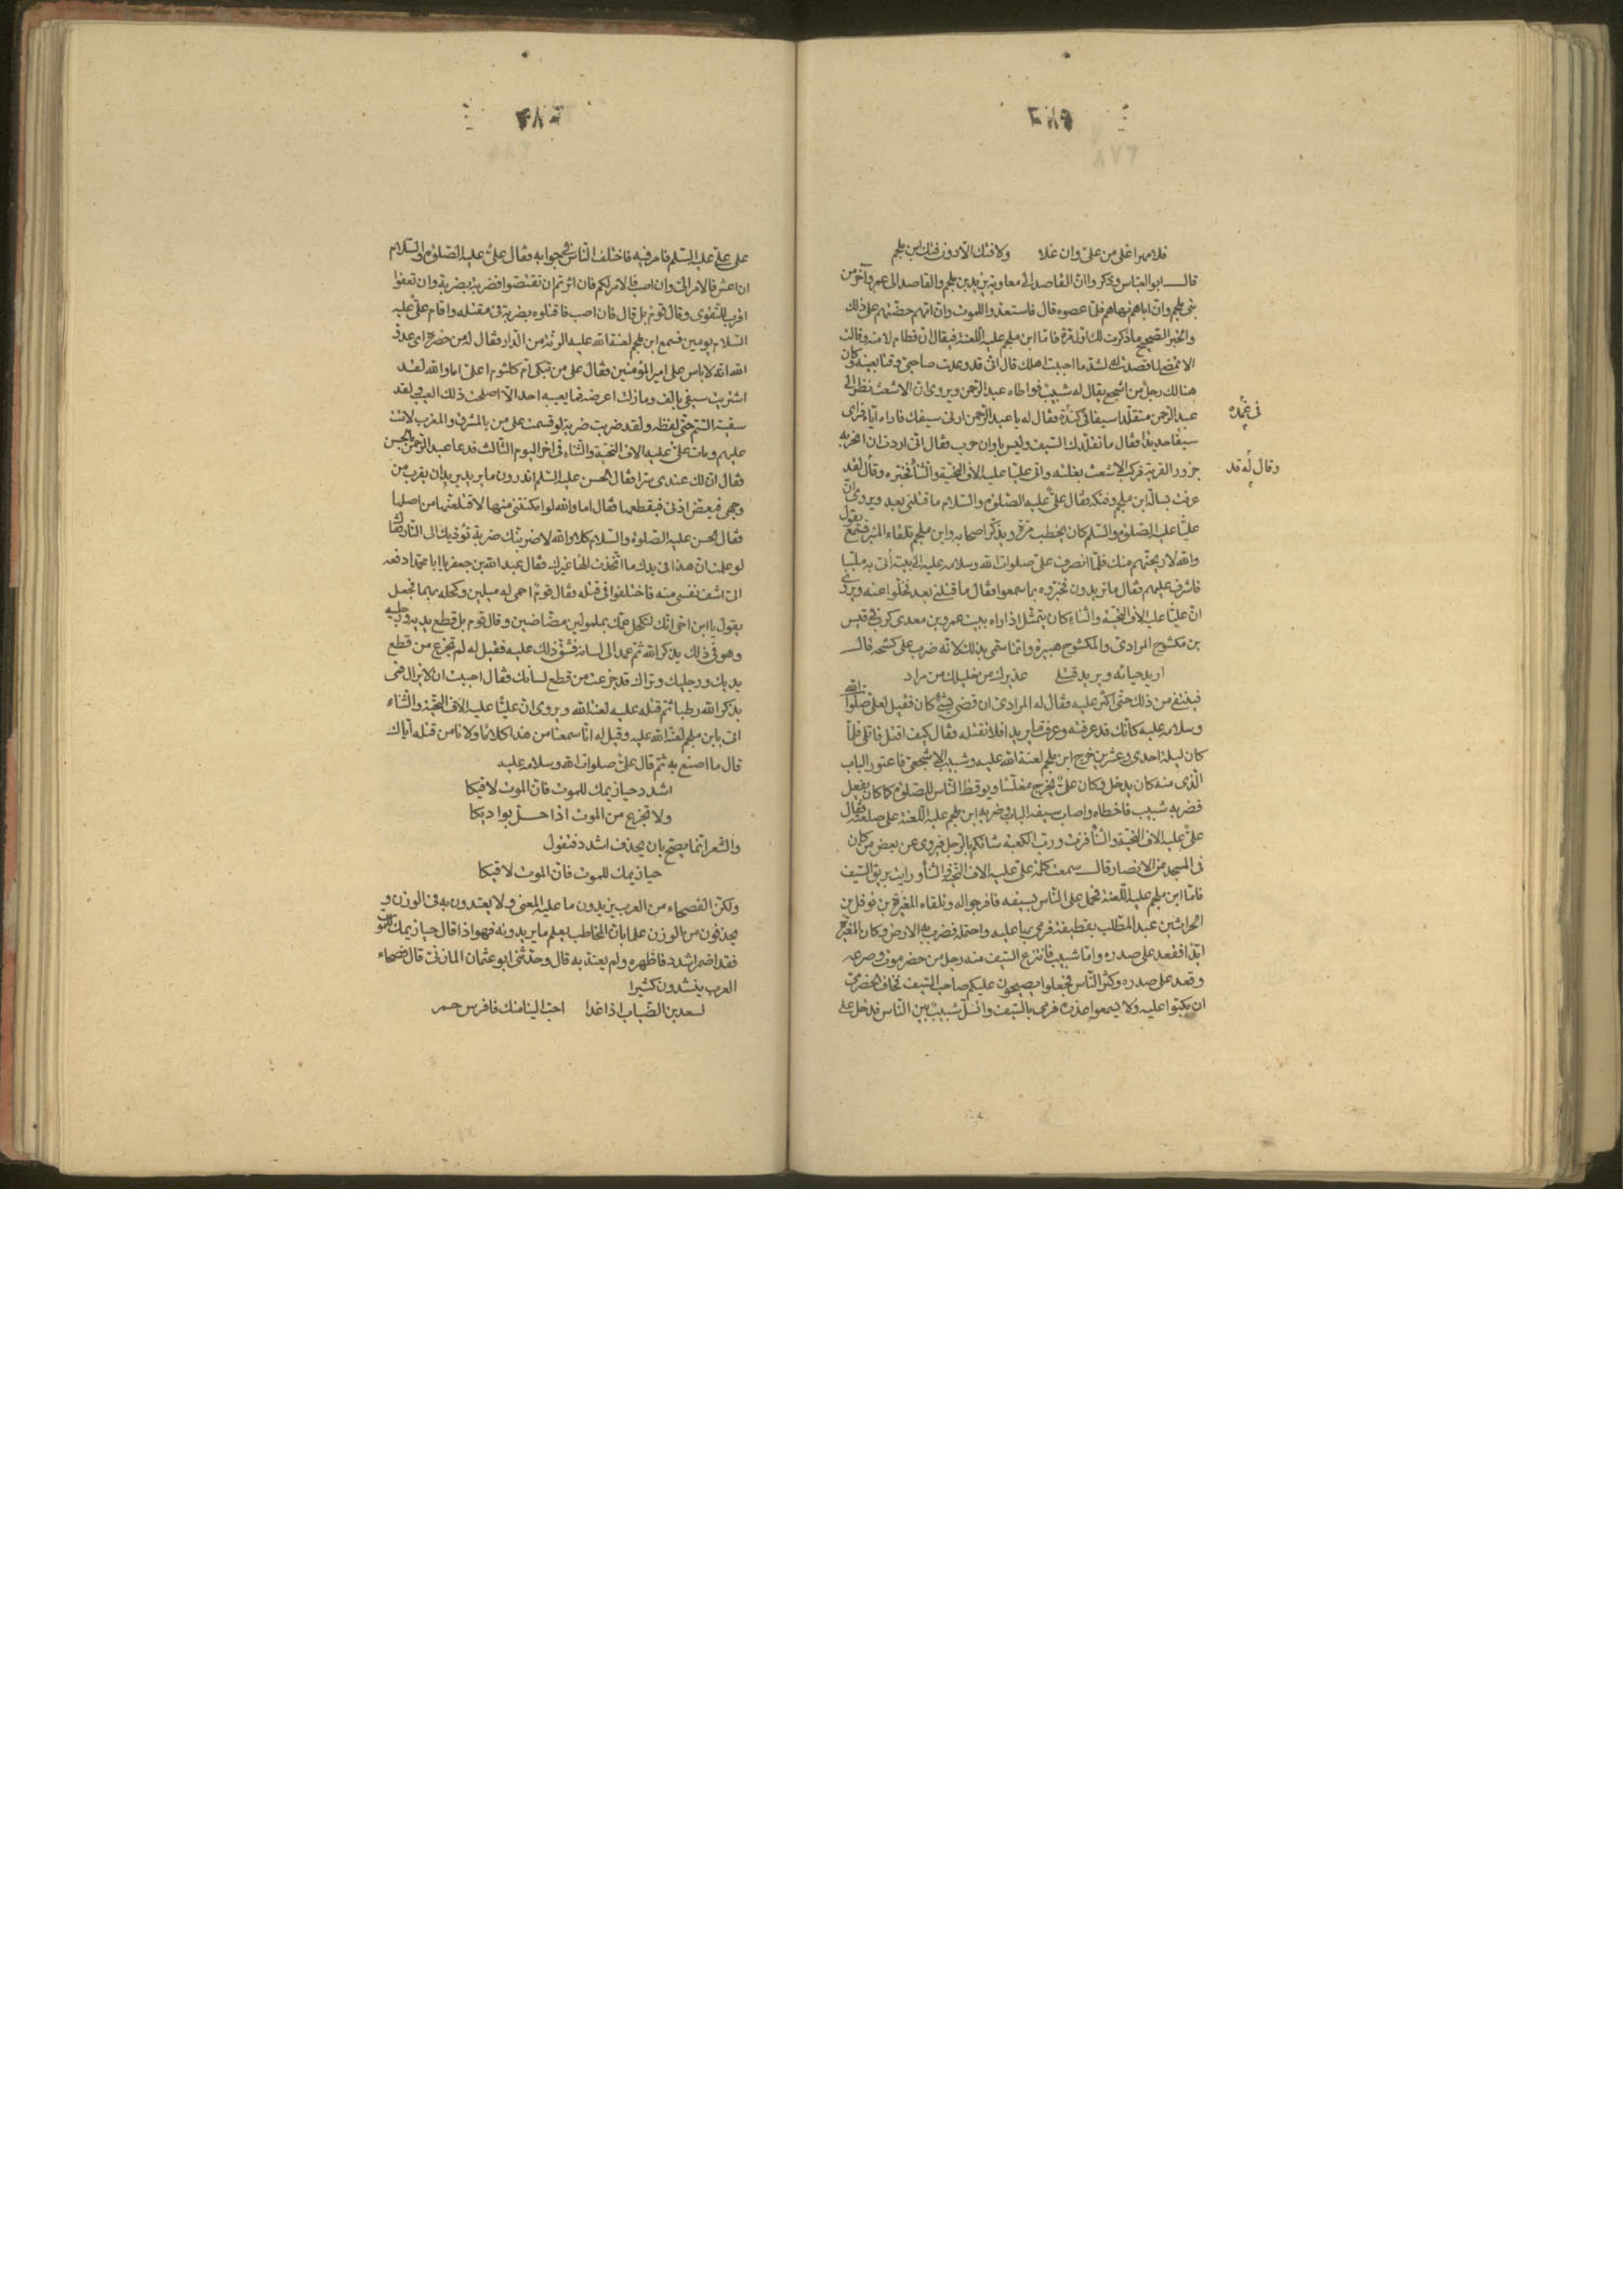 فلا مهرا غلى من علىّ وان غلا ولا فتك الا دون فتك ابن ملجم
قال ابو العبّاس وذكروا انّ القاصد الى معاوية يزيد بن ملجم والقاصد الى عمرو آخر من
بنى ملجم وانّ اباهم نهاهم فلمّا عصوه قال فاستعدّوا للموت وانّ امّهم حضّتهم على ذلك
والخبر الصّحيح ما ذكرت لك اوّل مرّة فامّا ابن ملجم عليه اللّعنة فيقال ان قطام لامته وقالت
الا تمضى لما قصدت له لشدّ ما احببت اهلك قال انّى قد وعدت صاحبىّ وقتا بعينه وكان
هنالك رجل من اشجع يقال له شبيب فواطاه عبد الرّحمن ويروى ان الاشعث نظر الى
عبد الرّحمن متقلّدا سيفا فى كندة فقال له يا عبد الرّحمن ارنى سيفك فاراه ايّاه فراى
فى غمده
سيفا حديدا فقال ما تقلّدك السّيف وليس باوان حرب فقال انّى اردت ان انحر به
جزور القرية فركب الاشعث بغلته واتى عليّا عليه الاف التّحيّة والثّنا فخبّره وقال لقد
وقال له قد
عرفت بسالة ابن ملجم وفتكه فقال علىّ عليه الصّلوة والسّلام ما قتلنى بعد ويروى انّ
عليّا عليه الصّلوة والسّلم كان يخطب مرّة ويذكّر اصحابه وابن ملجم تلقاء المنبر فسمع يقول
والله لاريحنّهم منك فلمّا انصرف علىّ صلوات الله وسلامه عليه الى بيته أتى به ملبّبا
فاشرف عليهم فقال ما تريدون فخبّروه بما سمعوا فقال ما قتلنى بعد فخلّوا عنه ويروى
انّ عليّا عليه الاف التحيّة والثّناء كان يتمثّل اذا راه ببيت عمرو بن معدى كرب فى قيس
بن مكشوح المرادىّ والمكشوح هبيرة وانّما سمّى بذلك لانّه ضرب على كشحه قال
اريد حياته ويريد قتلى عذيرك من خليلك من مراد
فينتفى من ذلك حتى اكثر عليه فقال له المرادىّ ان قضى شئ كان فقيل لعلىّ صلوات الله
وسلامه عليه كانّك قد عرفته وعرفت ما يريد افلا تقتله فقال كيف اقتل قاتلى فلمّا
كان ليلة احدى وعشرين خرج ابن ملجم لعنة الله عليه وشبيب الاشجعىّ فاعتورا الباب
الّذى منه كان يدخل وكان علىّ يخرج مغلّسا ويوقظ النّاس للصّلوة كما كان يفعل
فضربه شبيب فاخطاه واصاب سيفه الباب وضربه ابن ملجم عليه اللّعنة على صلعته فقال
علىّ عليه الاف التّحيّة والثّنا فزت وربّ الكعبة شانكم بالرّجل فيروى عن بعض من كان
فى المسجد من الانصار قال سمعت كلمة علىّ عليه الاف التّحيّة والثّنا ورايت بريق السّيف
فامّا ابن ملجم عليه اللّعنة فحمل على النّاس بسيفه فافرجوا له وتلقّاء المغيرة بن نوفل بن
الحراث بن عبد المطّلب بقطيفة فرمى بها عليه واحتمله فضرب به الارض وكان المغيرة
ايّدا فقعد على صدره وامّا شبيب فانتزع السّيف منه رجل من حضرموت وصرعه
وقعد على صدره وكثر النّاس فجعلوا يصيحون عليكم صاحب السّيف فخاف الحضرمىّ
ان يكبّوا عليه ولا يسمعوا عذره فرمى بالسّيف وانسلّ شبيب بين النّاس فدخل على
على علىّ عليه السّلم فامر فيه فاختلف النّاس فى جوابه فقال علىّ عليه الصّلوة والسّلام
ان اعش فالامر الىّ وان اصب فالامر لكم فان اثرتم ان تقتصّوا فضربة بضربة وان تعفوا
اقرب للتّقوى وقال قوم بل قال فان اصب فاقتلوه بضربة فى مقتله واقام علىّ عليه
السّلام يومين فسمع ابن ملجم لعنة الله عليه الرنّة من الدّار فقال له من حضره اى عدوّ
الله انّه لا باس على امير المؤمنين فقال على من تبكى ام كلثوم اعلىّ اما والله لقد
اشتريت سيفى بالف وما زلت اعرضه فما يعيبه احد الّا اصلحت ذلك العيب ولقد
سقيته السّمّ حتى لفظه ولقد ضربت ضربة لو قسمت على من بالمشرق والمغرب لاتت
عليهم ومات علىّ عليه الاف التّحيّة والثّناء فى اخر اليوم الثّالث فدعا عبد الرّحمن بالحسن
فقال ان لك عندى سرّا فقال الحسن عليه السّلم اتدرون ما يريد يريد ان يقرب من
وجهى فيعضّ اذنى فيقطعها فقال اما والله لو امكنتنى منها لاقتلعتها من اصلها
فقال الحسن عليه الصّلوة والسّلام كلا والله لاضربنّك ضربة تؤدّيك الى النّار فقال
لو علمت انّ هذا فى يدك ما اتّخذت الها غيرك فقال عبد الله بن جعفر يا ابا محمّد ادفعه
الىّ اشف نفسى منه فاختلفوا فى قتله فقال قوم احمى له ميلين وكحله بهما فجعل
يقول يا ابن اخى انّك لتكحل عمّك بملمولين مضّاضين وقال قوم بل قطع يديه ورجليه
وهو فى ذلك يذكر الله ثم عمد الى لسانه فشقّ ذلك عليه فقيل له لم تجزع من قطع
يديك ورجليك ونراك قد جزعت من قطع لسانك فقال احببت ان لا يزال فمى
بذكر الله رطبا ثم قتله عليه لعنة الله ويروى انّ عليّا عليه الاف التّحيّة والثّناء
اتى بابن ملجم لعنة الله عليه وقيل له انّا سمعنا من هذا كلاما ولا نامن قتله ايّاك
قال ما اصنع به ثم قال علىّ صلوات الله وسلامه عليه
اشدد حيازيمك للموت فانّ الموت لاقيكا
ولا تجزع من الموت اذا حلّ بواديكا
والشّعر انّما يصحّ بان يحذف اشدد فتقول
حيازيمك للموت فانّ الموت لاقيكا
ولكنّ الفصحاء من العرب يزيدون ما عليه المعنى ولا يعتدون به فى الوزن و
يحذفون من الوزن علما بانّ المخاطب يعلم ما يريدونه فهو اذا قال حيازيمك للموت
فقد اضمر اشدد فاظهره ولم يعتدّ به قال وحدّثنى ابو عثمان المازنىّ قال فصحاء
العرب ينشدون كثيرا
لسعد بن الضّباب اذا غدا احبّ الينا منك فا فرس حمر